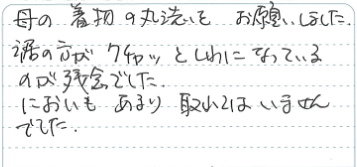 母の着物の丸洗いを お願いしました.
裾の方が クチャッ としわに なっている
のが 残念でした.
においも あまり 取れてはいません
でした.